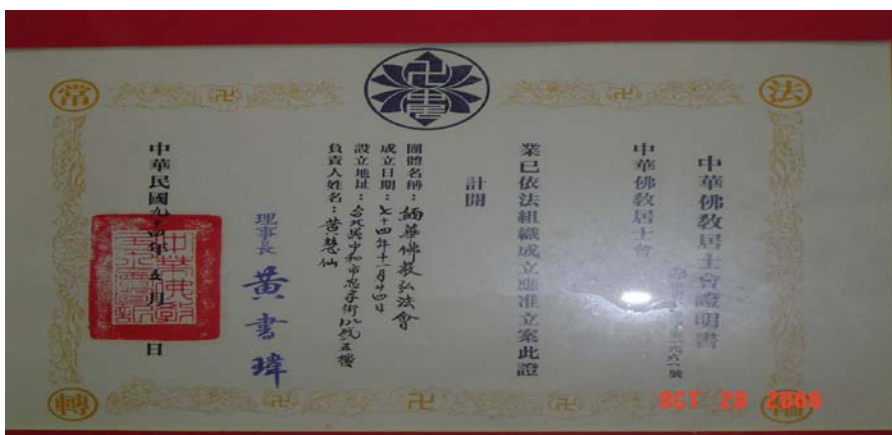 法
常
中華佛教居士會證明書
號
中華佛教居士會
業已依法組織成立應准立案此證
計開
團體名稱：緬華佛教弘法會
成立日期：七十四年十一月廿四日
設立地址：台北縣中和市忠孝街 號五樓
負責人姓名：黃慧仙
理事長 黃書瑋
中華民國九十四年五月 日
轉
OCT 29 2006